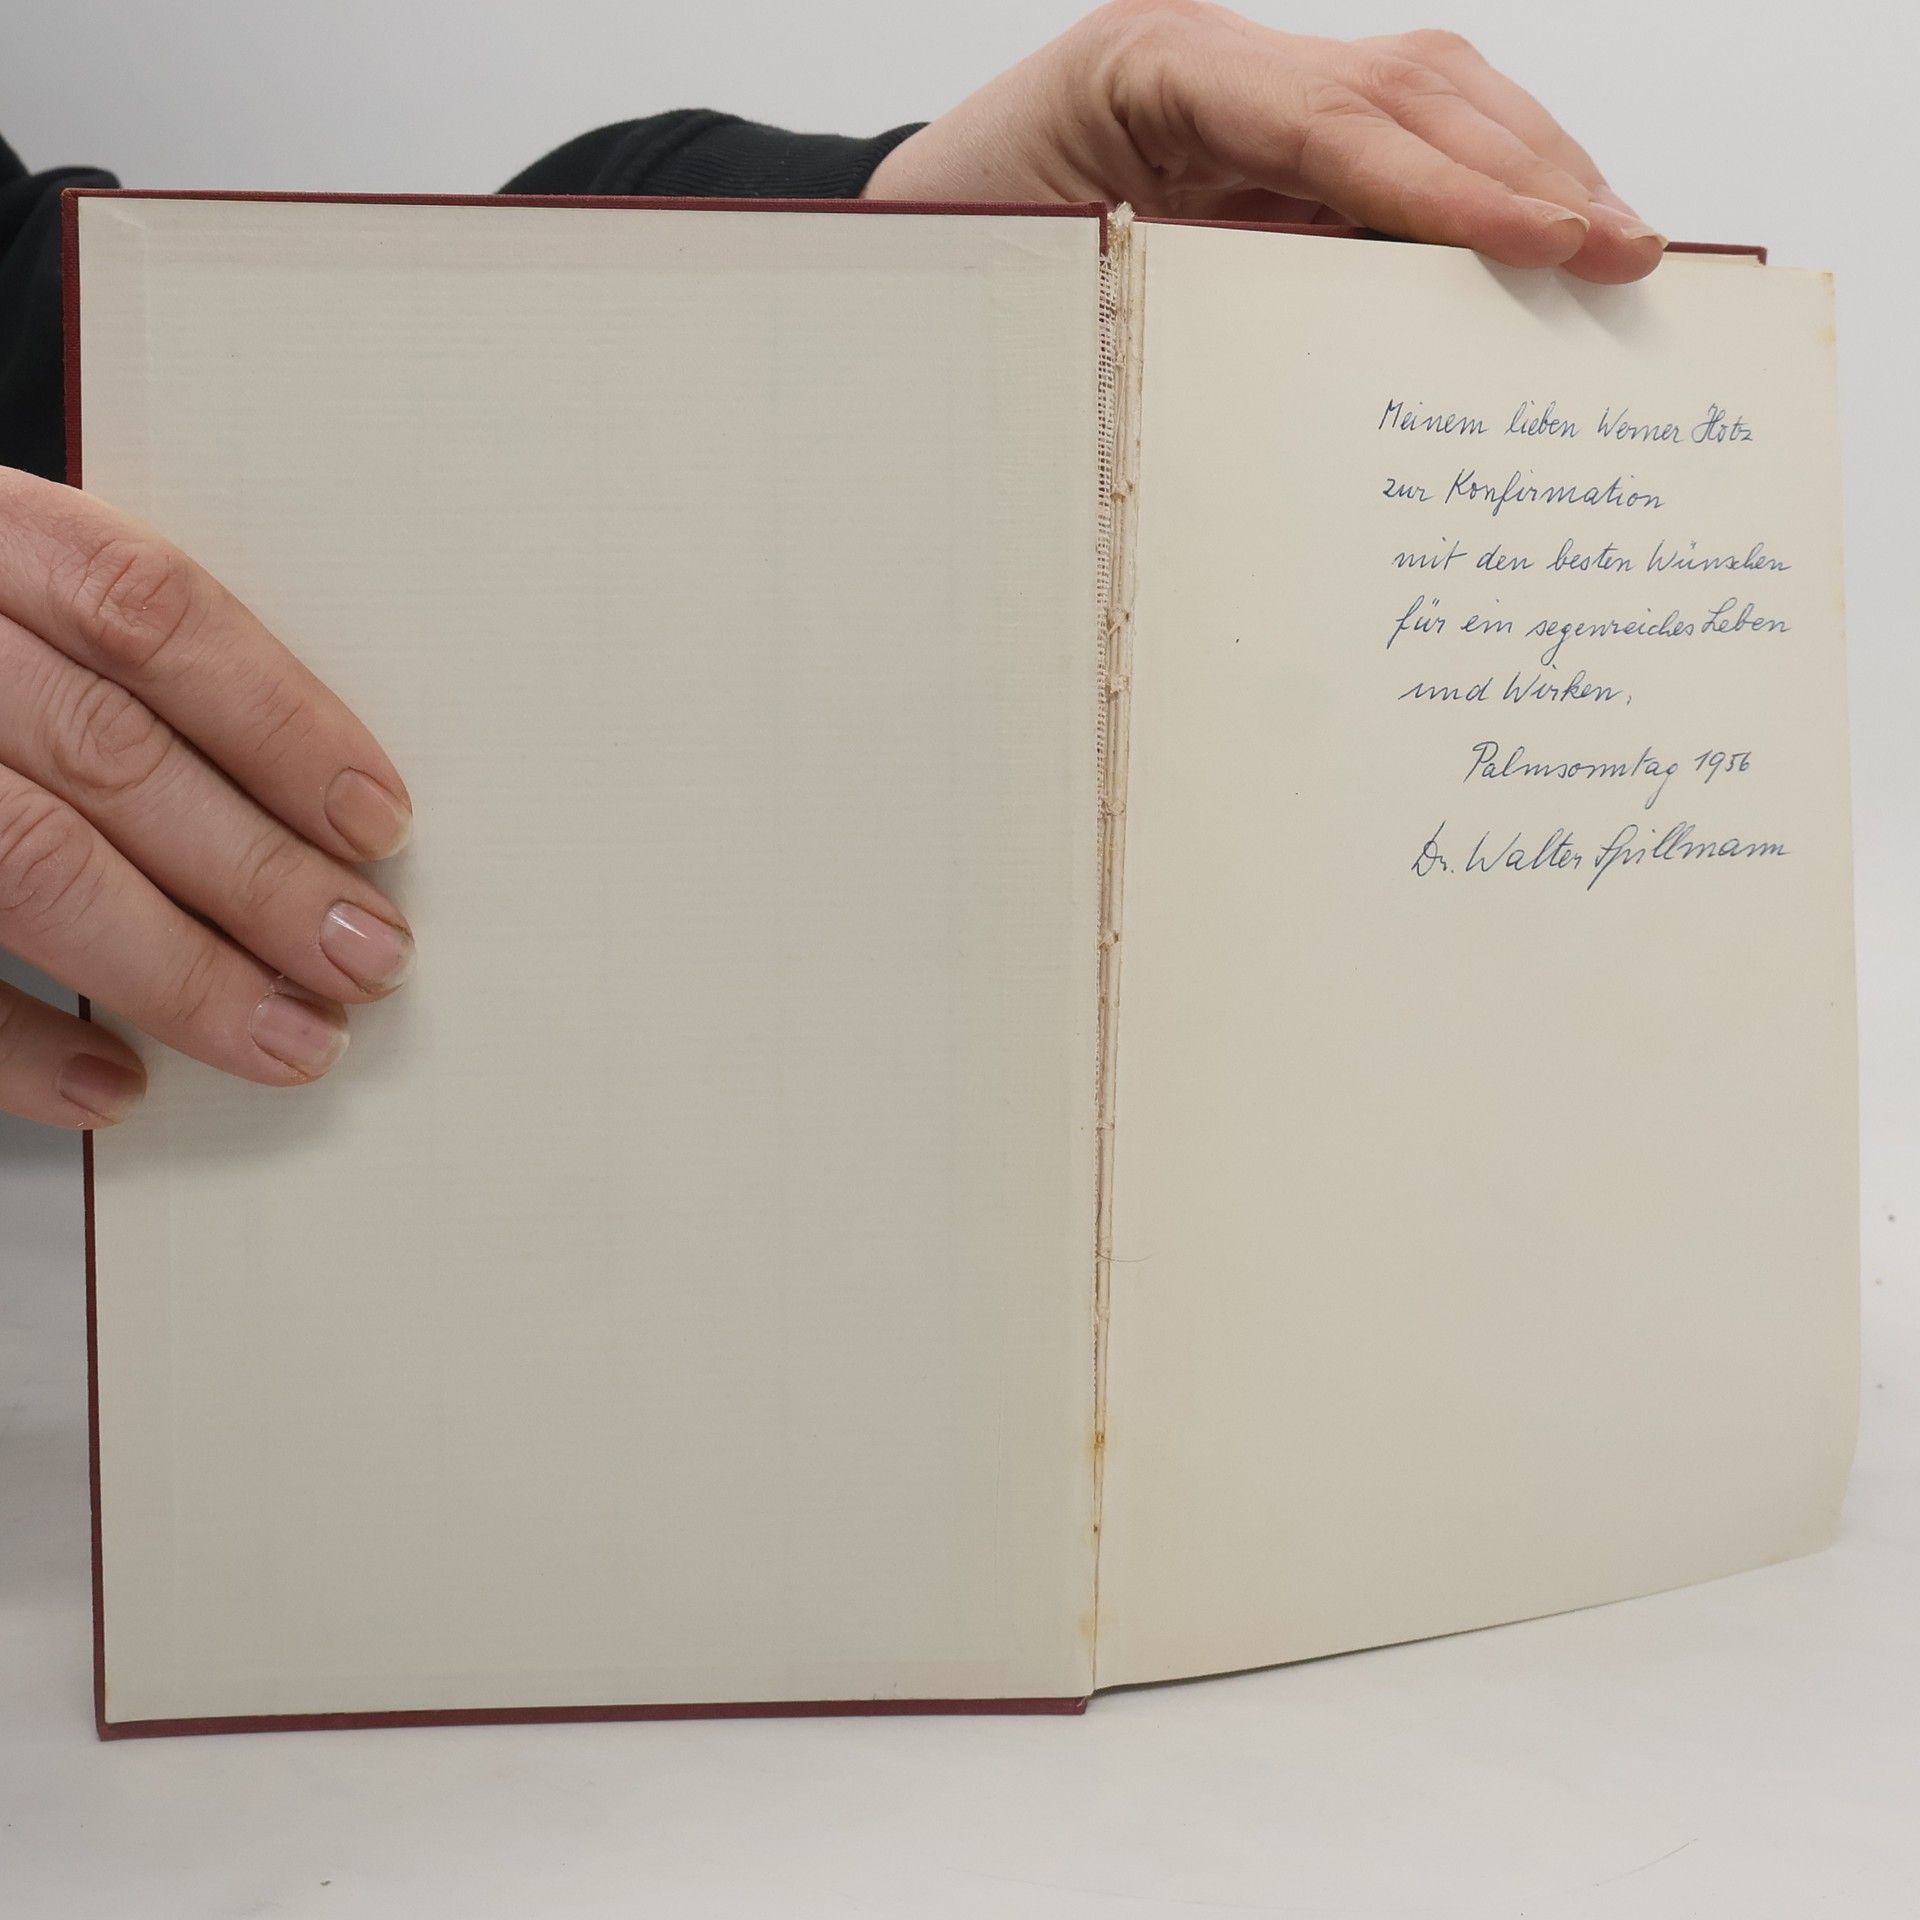 Meinem lieben Werner Hotz
zur Konfirmation
mit den besten Wünschen
für ein segenreiches Leben
und Wirken.
Palmsonntag 1956
Dr. Walter Spillmann